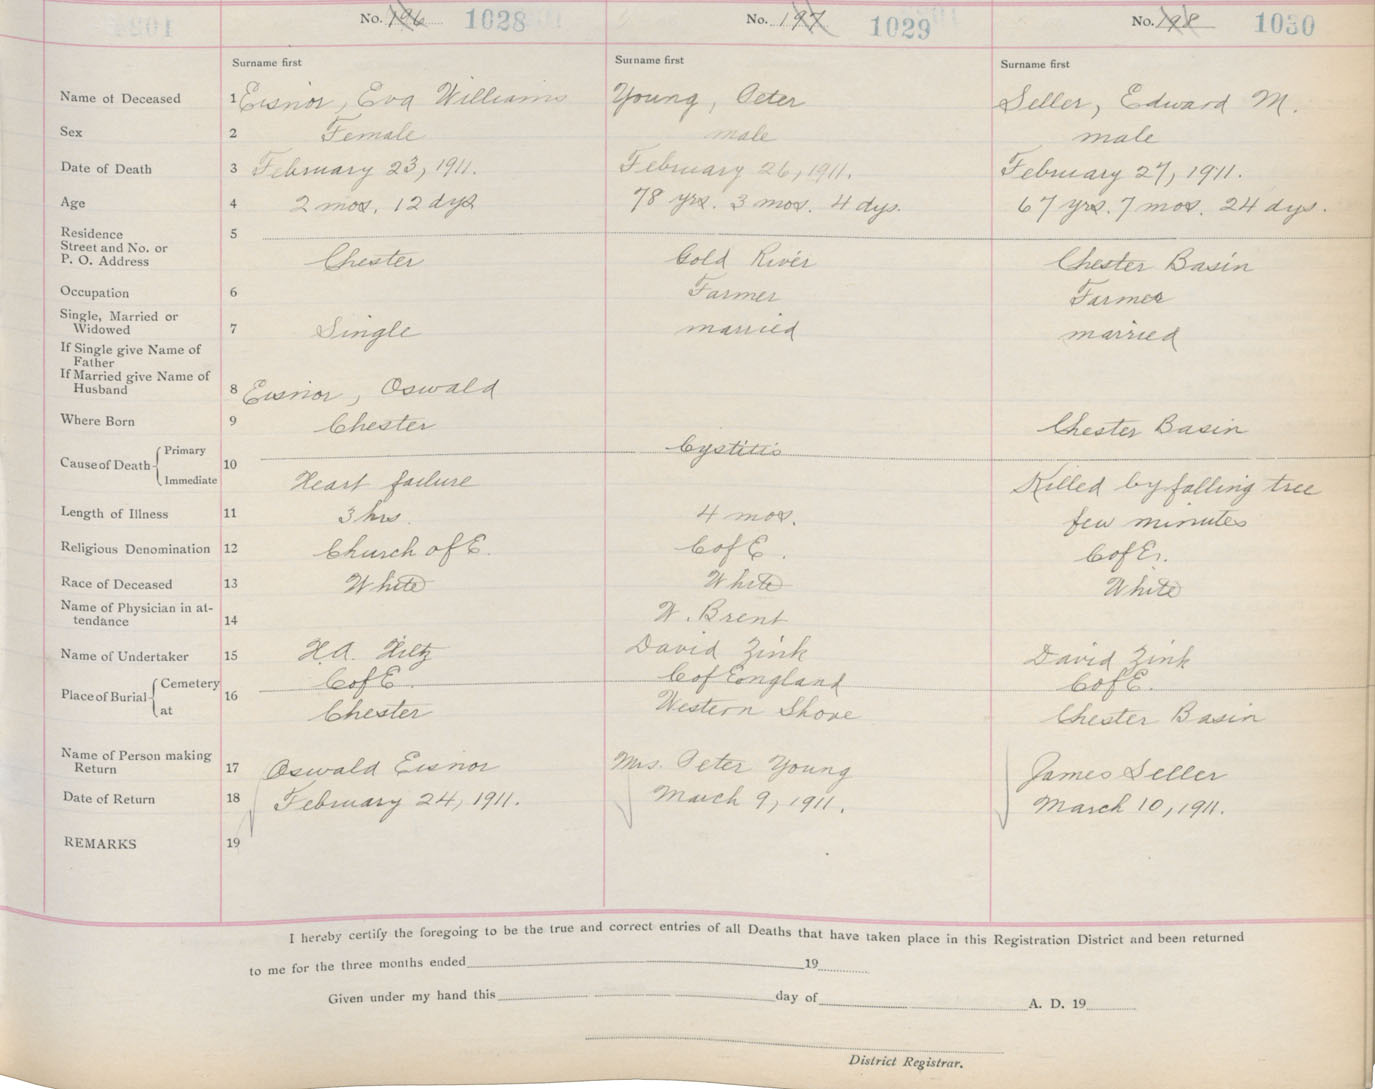 No. 196 1028 No. 197 1029 No. 198 1030
Surname first Surname first Surname first
Name of Deceased 1 Eisnor, Eva Williams Young, Peter Seller, Edward M.
Sex 2 Female male male
Date of Death 3 February 23, 1911. February 26, 1911. February 27, 1911.
Age 4 2 mos. 12 dys 78 yrs. 3 mos. 4 dys. 67 yrs. 7 mos. 24 dys.
Residence 5
Street and No. or
P. O. Address Chester Gold River Chester Basin
Occupation 6 Farmer Farmer
Single, Married or
Widowed 7 Single married married
If Single give Name of
Father
If Married give Name of
Husband 8 Eisnor, Oswald
Where Born 9 Chester Chester Basin
Cause of Death 10 Primary Cystitis
Immediate Heart failure Killed by falling tree
Length of Illness 11 3 hrs. 4 mos. few minutes
Religious Denomination 12 Church of E. C of E. C of E.
Race of Deceased 13 White White White
Name of Physician in at-
tendance 14 W. Brent
Name of Undertaker 15 H.A. Hiltz David Zink David Zink
Place of Burial 16 Cemetery C of E. C of England C of E.
at Chester Western Shore Chester Basin
Name of Person making
Return 17 Oswald Eisnor Mrs. Peter Young James Seller
Date of Return 18 February 24, 1911. March 9, 1911. March 10, 1911.
REMARKS 19
I hereby certify the foregoing to be the true and correct entries of all Deaths that have taken place in this Registration District and been returned
to me for the three months ended 19
Given under my hand this day of A. D. 19
District Registrar.